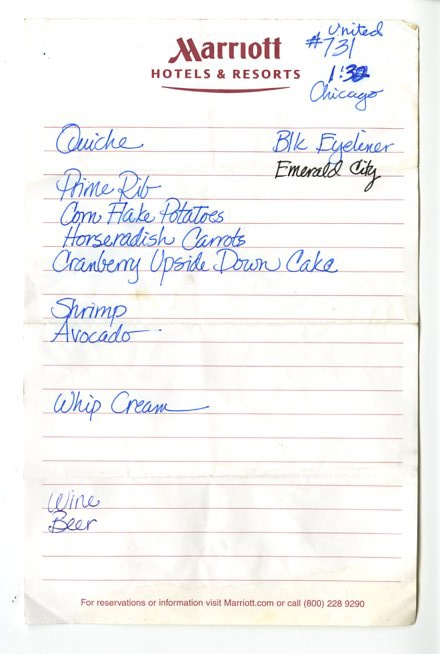 Marriott
HOTELS & RESORTS
United
#731
1:30
Chicago
Quiche
Blk Eyeliner
Emerald City
Prime Rib
Corn Flake Potatoes
Horseradish Carrots
Cranberry Upside Down Cake
Shrimp
Avocado
Whip Cream
Wine
Beer
For reservations or information visit Marriott.com or call (800) 228 9290